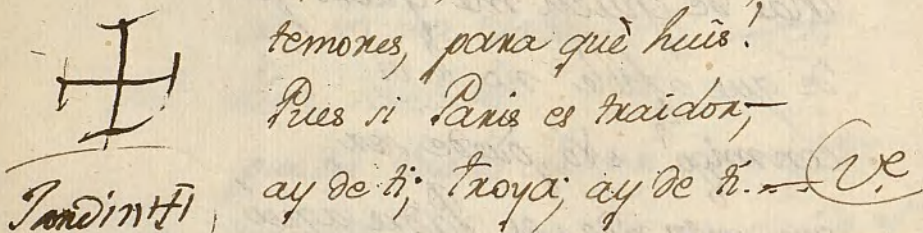 temores, para què huis!
Pues si Paris es traidor,
ay de ti; troya; ay de ti.= Ve
Jardin